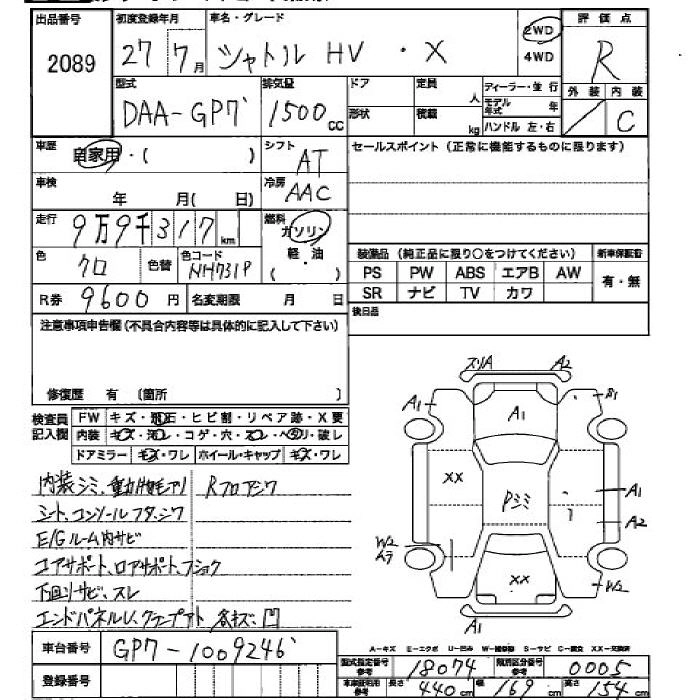 出品番号 初度登録年月 車名・グレード 評価点
2089 27 7月 シャトル HV ・ X 2WD 4WD R
型式 排気量 ドア 定員 人 ディーラー・並行 外装 内装
DAA-GP7 1500cc 形状 積載 kg モデル年式 年 ハンドル 左・右 C
車歴 自家用・( ) シフト AT セールスポイント (正常に機能するものに限ります)
車検 年 月( 日) 冷房 AAC
走行 9万9千317km 燃料 ガソリン
色 クロ 色替 色コード NH731P 軽・油 ( ) 装備品 (純正品に限り○をつけてください) 新車保証書
PS PW ABS エアB AW 有・無
R券 9600円 名変期限 月 日 SR ナビ TV カワ
注意事項申告欄(不具合内容等は具体的に記入して下さい) 後日品
修復歴 有 〔箇所 〕
検査員 FW キズ・飛石・ヒビ割・リペア跡・X要
記入欄 内装 キズ・汚レ・コゲ・穴・スレ・ヘタリ・破レ
ドアミラー キズ・ワレ ホイール・キャップ キズ・ワレ
スリA A2
A1 A1 A1
内装シミ、 Rフロアシワ
シート、コンソールフタ、シワ XX Pシミ A1
A2
E/Gルーム内サビ W2
コアサポート、ロアサポート、フショク
下回リサビ、スレ XX W2
エンドパネルU、 各キズ凹
A1
車台番号 GP7-1009246 A-キズ E-エクボ U-凹ミ W-補修跡 S-サビ C-腐食 XX-交換済
型式指定番号 参考 18074 類別区分番号 参考 0005
登録番号 車車証明用 参考 長さ 440cm 幅 169cm 高さ 154cm